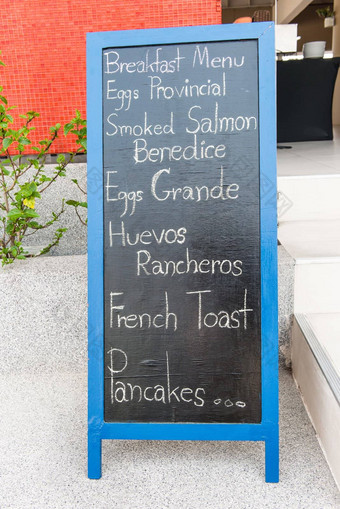 Breakfast Menu
Eggs Provincial
Smoked Salmon
Benedice
Eggs Grande
Huevos
Rancheros
French Toast
Plancakes ...